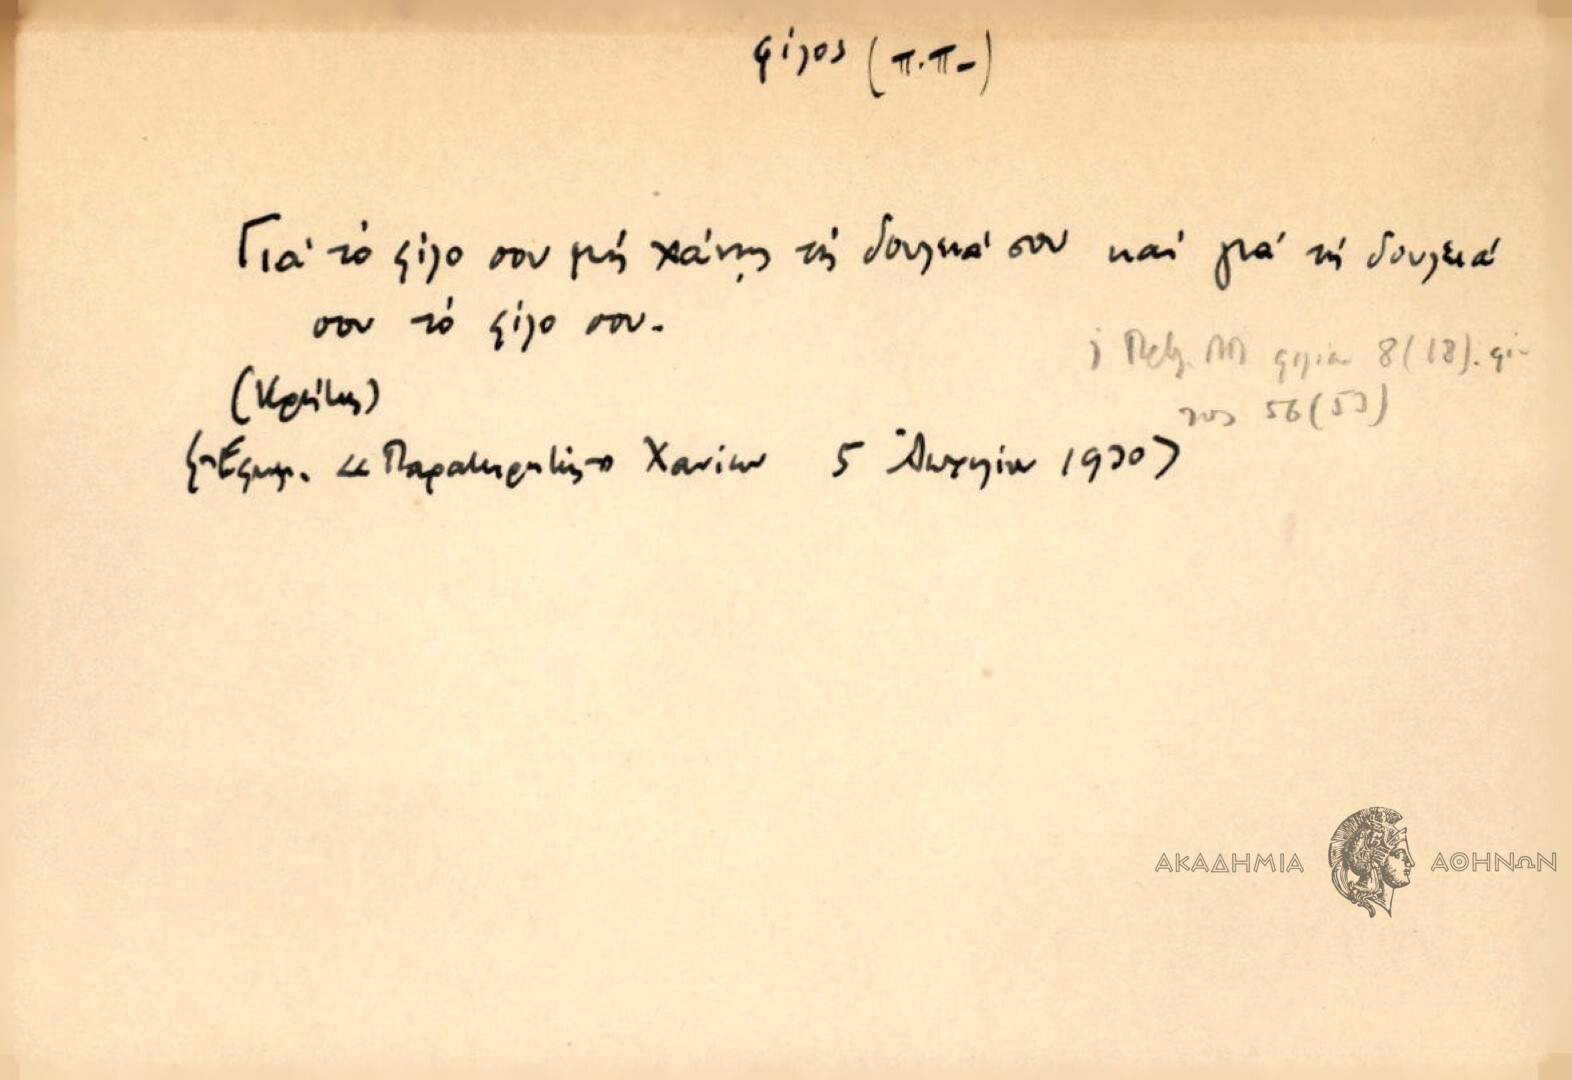 φίλος (π.π-)
Γιά τό φίλο σου μή χάνῃς τή δουλειά σου καί γιά τή δουλειά
σου τό φίλο σου.
(Κρήτης)
Ἐφημ. «Παρατηρητής» Χανίων 5 Ἀπριλίου 1930
φιλία 8 (18). φί-
λος 56 (53)
ΑΚΑΔΗΜΙΑ ΑΘΗΝΩΝ